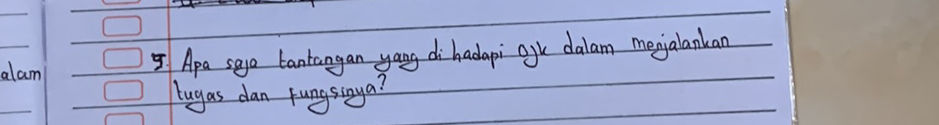 5. Apa saja tantangan yang di hadapi OJK dalam menjalankan
tugas dan fungsinya?
alam